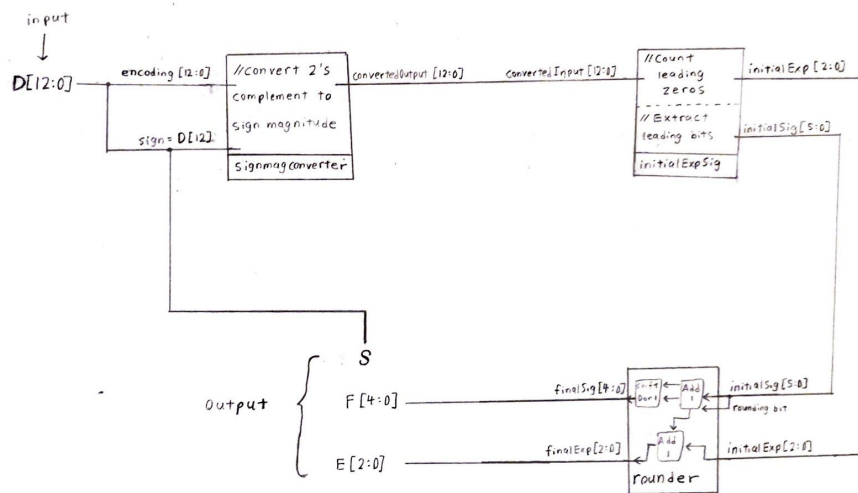 input
D[12:0]
encoding [12:0]
sign = D[12]
//Convert 2's
complement to
sign magnitude
signmagconverter
convertedOutput [12:0]
convertedInput [12:0]
//Count
leading
zeros
// Extract
leading bits
initialExpSig
initialExp [2:0]
initialSig [5:0]
S
Output
F[4:0]
E[2:0]
finalSig[4:0]
finalExp[2:0]
Add
1
Add
1
rounder
initialSig[5:0]
rounding bit
initialExp[2:0]